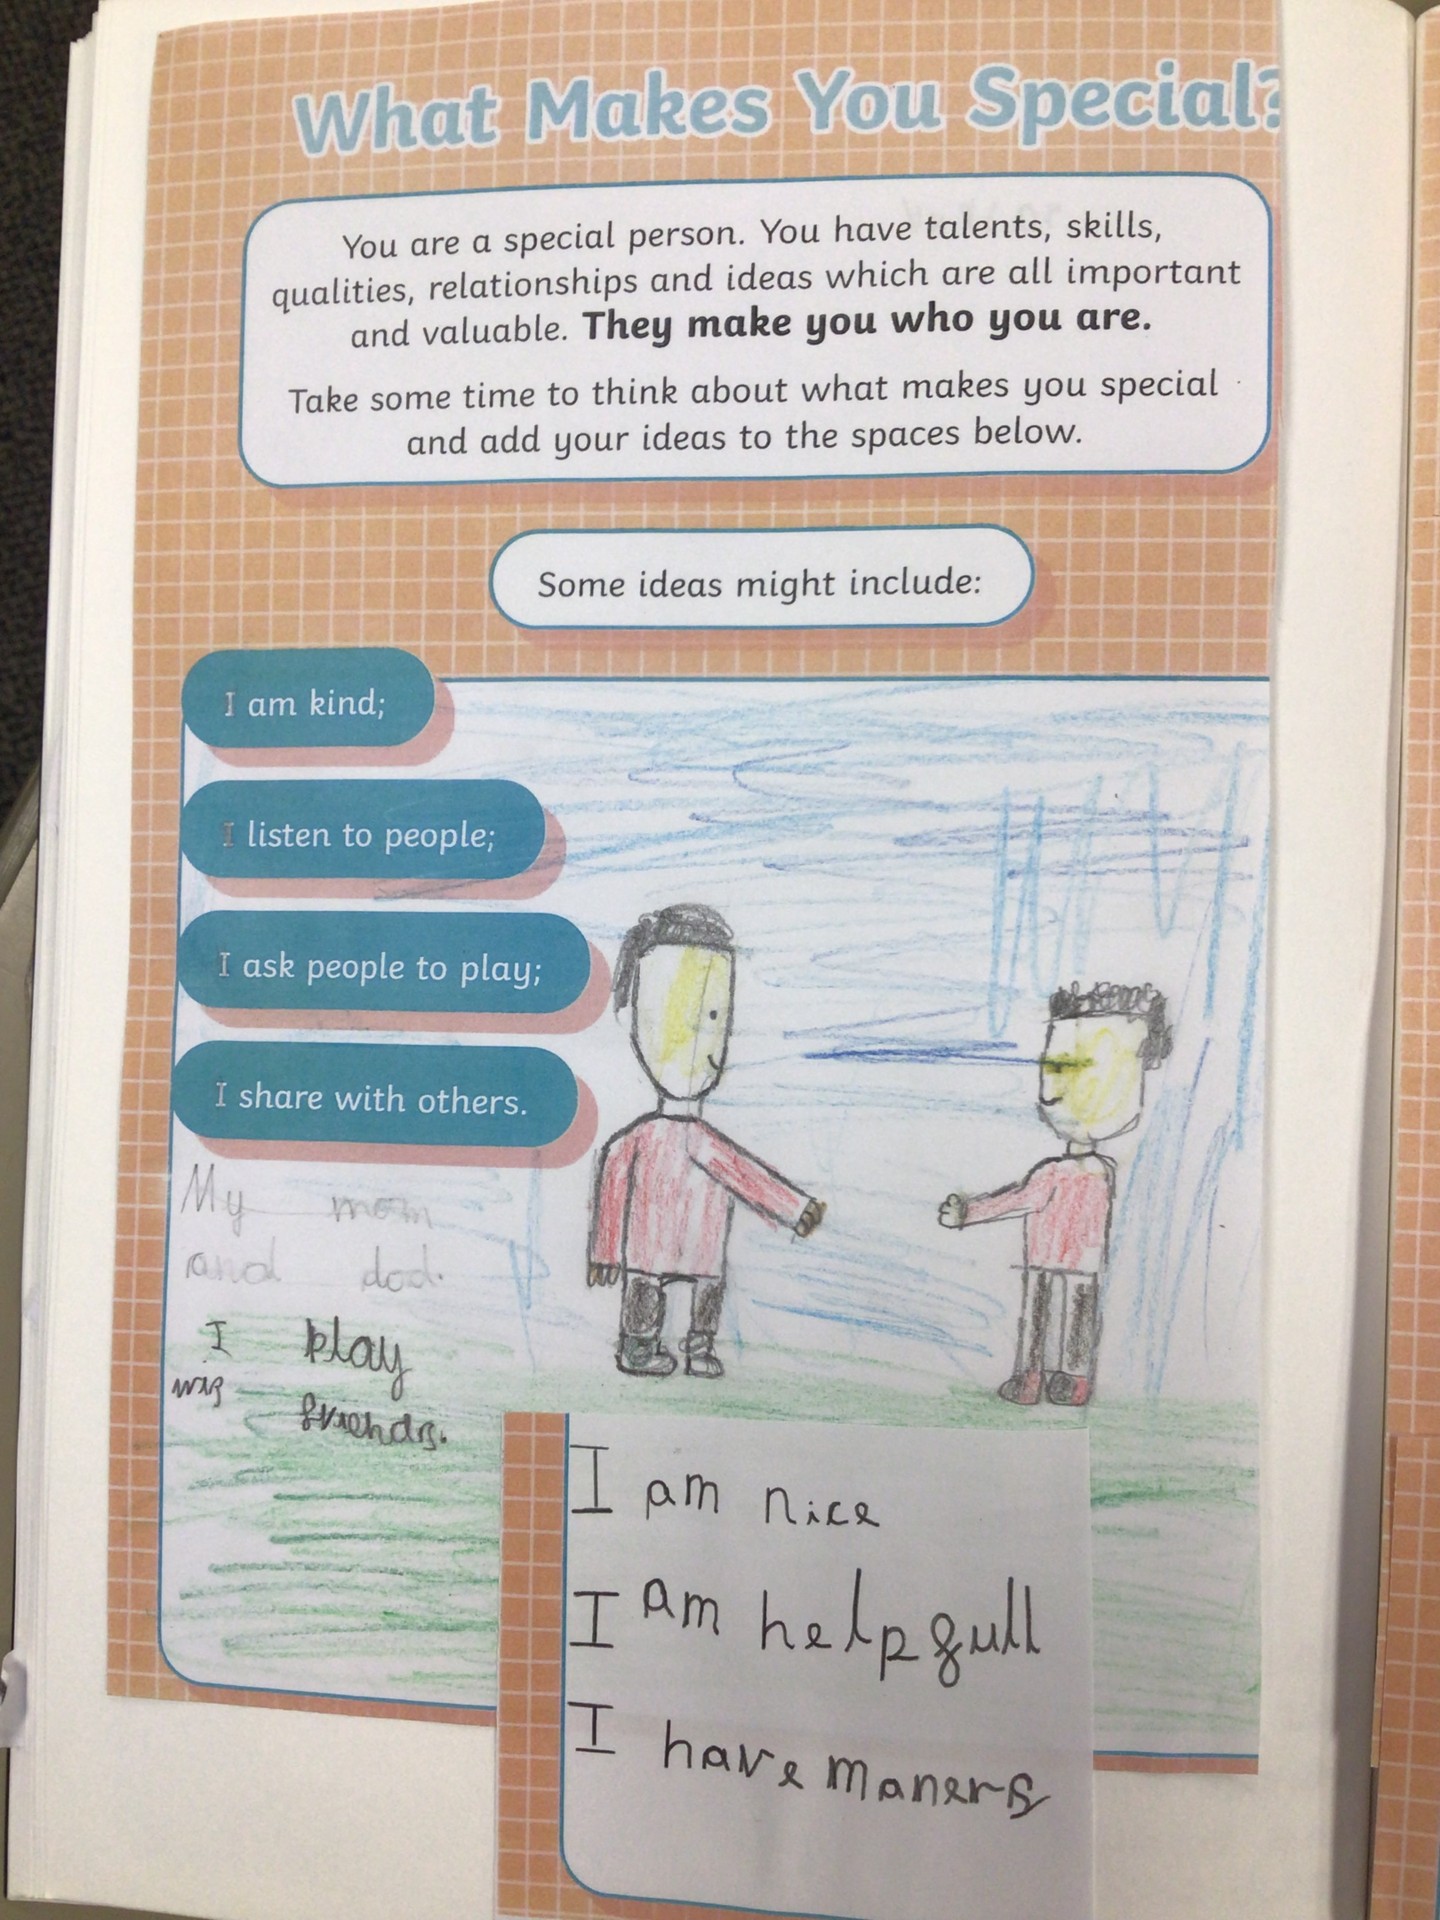 What Makes You Special?
You are a special person. You have talents, skills,
qualities, relationships and ideas which are all important
and valuable. They make you who you are.
Take some time to think about what makes you special
and add your ideas to the spaces below.
Some ideas might include:
I am kind;
I listen to people;
I ask people to play;
I share with others.
My mom
and dad.
I play
friends.
I am nice
I am helpfull
I have maners